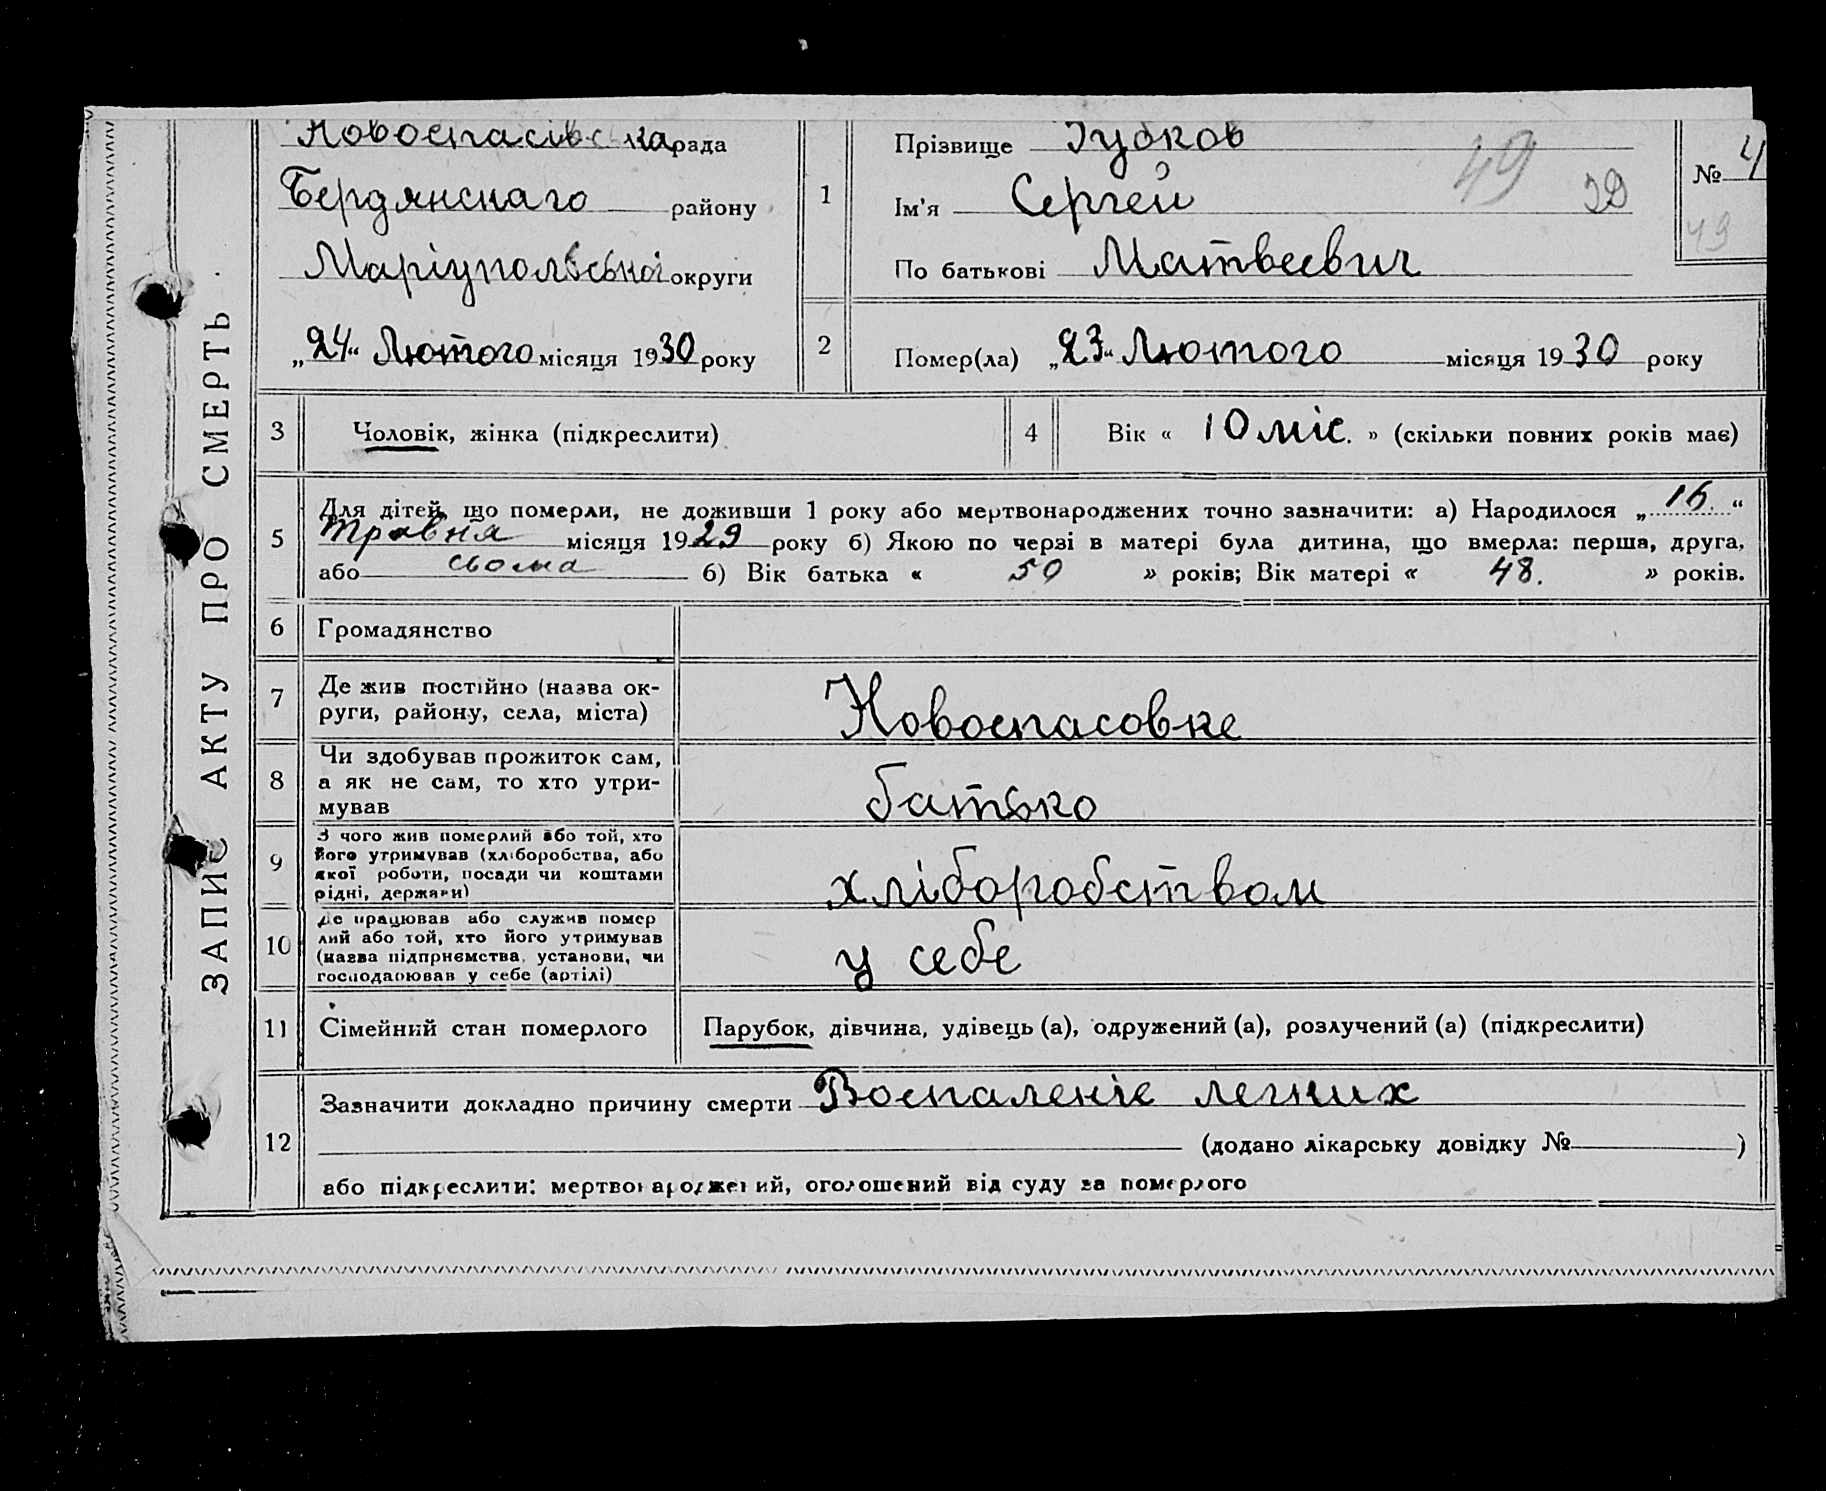 ЗАПИС АКТУ ПРО СМЕРТЬ
Новоспасівська рада
Бердянскаго району
Маріупольської округи
„24“ Лютого місяця 1930 року
1
Прізвище Губков
Ім'я Сергей
По батькові Матвеевич
49
№ 4
49
2
Помер(ла) „23“ Лютого місяця 1930 року
3
Чоловік, жінка (підкреслити)
4
Вік « 10 міс. » (скільки повних років має)
5
Для дітей, що померли, не доживши 1 року або мертвонароджених точно зазначити: а) Народилося „16.“
травня місяця 1929 року б) Якою по черзі в матері була дитина, що вмерла: перша, друга,
або сьома б) Вік батька « 50 » років; Вік матері « 48. » років.
6
Громадянство
7
Де жив постійно (назва ок-
руги, району, села, міста)
Новоспасовке
8
Чи здобував прожиток сам,
а як не сам, то хто утри-
мував
батько
9
З чого жив померлий або той, хто
його утримував (хліборобства, або
якої роботи, посади чи коштами
рідні, держави)
хліборобством
10
Де працював або служив помер
лий або той, хто його утримував
(назва підприємства, установи, чи
господарював у себе (артілі)
у себе
11
Сімейний стан померлого
Парубок, дівчина, удівець (а), одружений (а), розлучений (а) (підкреслити)
12
Зазначити докладно причину смерти Воспаленіе легких
(додано лікарську довідку № )
або підкреслити: мертвонароджений, оголошений від суду за померлого